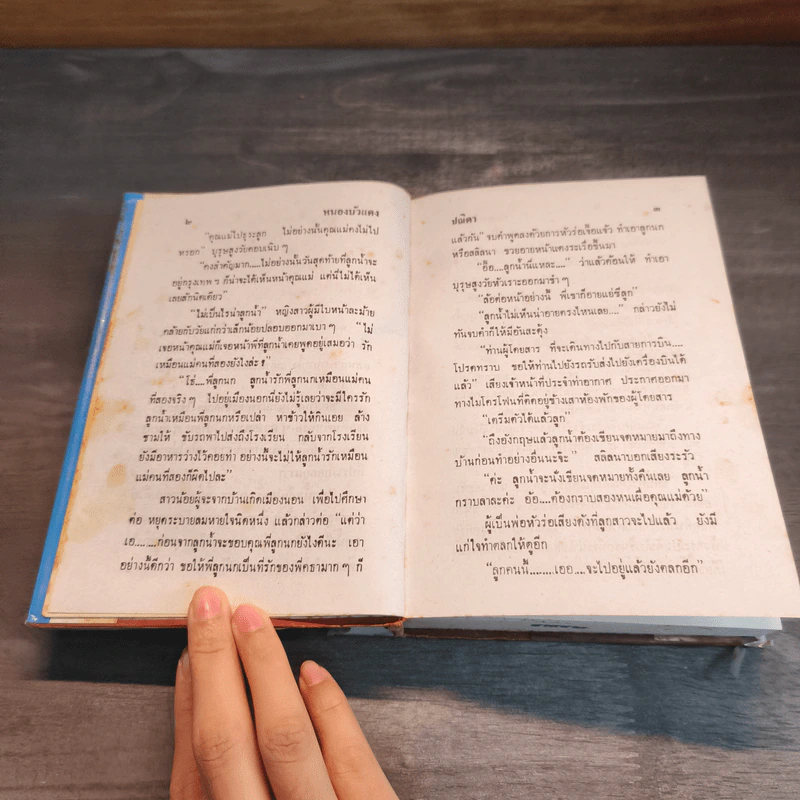 ๒ หนองบัวแดง
"คุณแม่ไปธุระลูก ไม่อย่างนั้นคุณแม่คงไม่ไป
หรอก" บุรุษสูงวัยตอบเนิบ ๆ
"คงสำคัญมาก.....ไม่อย่างนั้นวันสุดท้ายที่ลูกน้ำจะ
อยู่กรุงเทพ ๆ ก็น่าจะได้เห็นหน้าคุณแม่ แต่นี่ไม่ได้เห็น
เลยสักนิดเดียว"
"ไม่เป็นไรน่าลูกน้ำ" หญิงสาวผู้มีใบหน้าละม้าย
คล้ายกับวัยแก่กว่าเล็กน้อยปลอบออกมาเบา ๆ "ไม่
เจอหน้าคุณแม่ก็เจอหน้าพี่ที่ลูกน้ำเคยพูดอยู่เสมอว่า รัก
เหมือนแม่คนที่สองยังไงล่ะ ฯ"
"โธ่....พี่ลูกนก ลูกน้ำรักพี่ลูกนกเหมือนแม่คน
ที่สองจริง ๆ ไปอยู่เมืองนอกนี่ยังไม่รู้เลยว่าจะมีใครรัก
ลูกน้ำเหมือนพี่ลูกนกหรือเปล่า หาข้าวให้กินเอย ล้าง
ชามให้ ขับรถพาไปส่งถึงโรงเรียน กลับจากโรงเรียน
ยังมีอาหารว่างไว้คอยท่า อย่างนี้จะไม่ให้ลูกน้ำรักเหมือน
แม่คนที่สองก็ผิดไปละ"
สาวน้อยผู้จะจากบ้านเกิดเมืองนอน เพื่อไปศึกษา
ต่อ หยุดระบายลมหายใจนิดหนึ่ง แล้วกล่าวต่อ "แต่ว่า
เอ........ก่อนจากลูกน้ำจะขอบคุณพี่ลูกนกยังไงดีนะ เอา
อย่างนี้ดีกว่า ขอให้พี่ลูกนกเป็นที่รักของพี่คธามาก ๆ ก็
ปณิตา ๓
แล้วกัน" จบคำพูดลงด้วยการหัวร่อเจื้อยแจ้ว ทำเอาลูกนก
หรือสลิลนา ขวยอายหน้าแดงระเรื่อขึ้นมา
"อื้อ....ลูกน้ำนี่แหละ...." ว่าแล้วค้อนให้ ทำเอา
บุรุษสูงวัยหัวเราะออกมาขำ ๆ
"ล้อต่อหน้าอย่างนี้ พี่เขาก็อายแย่ซีลูก"
"ลูกน้ำไม่เห็นน่าอายตรงไหนเลย...." กล่าวยังไม่
ทันจบคำก็ให้มีอันสะดุ้ง
"ท่านผู้โดยสาร ที่จะเดินทางไปกับสายการบิน....
โปรดทราบ ขอให้ท่านไปยังรถรับส่งไปยังเครื่องบินได้
แล้ว" เสียงเจ้าหน้าที่ประจำท่าอากาศ ประกาศออกมา
ทางไมโครโฟนที่ติดอยู่ข้างเสาห้องพักของผู้โดยสาร
"เตรียมตัวได้แล้วลูก"
"ถึงอังกฤษแล้วลูกน้ำต้องเขียนจดหมายมาถึงทาง
บ้านก่อนทำอย่างอื่นนะจ๊ะ" สลิลนาบอกเสียงระรัว
"ค่ะ ลูกน้ำจะนั่งเขียนจดหมายทั้งคืนเลย ลูกน้ำ
กราบลาละค่ะ อ้อ....ต้องกราบสองหนเผื่อคุณแม่ด้วย"
ผู้เป็นพ่อหัวร่อเสียงดังที่ลูกสาวจะไปแล้ว ยังมี
แก่ใจทำตลกให้ดูอีก
"ลูกคนนี้.........เออ....จะไปอยู่แล้วยังตลกอีก"